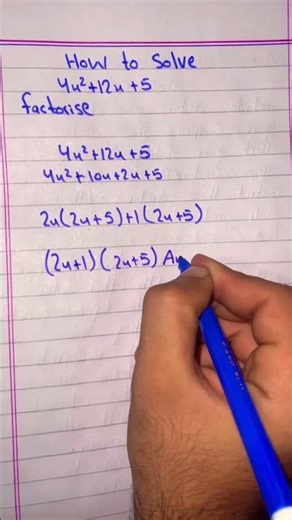 How to Solve
4u²+12u+5
factorise
4u²+12u+5
4u²+10u+2u+5
2u(2u+5)+1(2u+5)
(2u+1)(2u+5) A